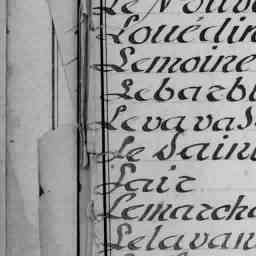 Le Nouve
Louédin
Lemoine
Lebarbi
Levavas
Le Sain
Lair
Lemarcha
Lelavan